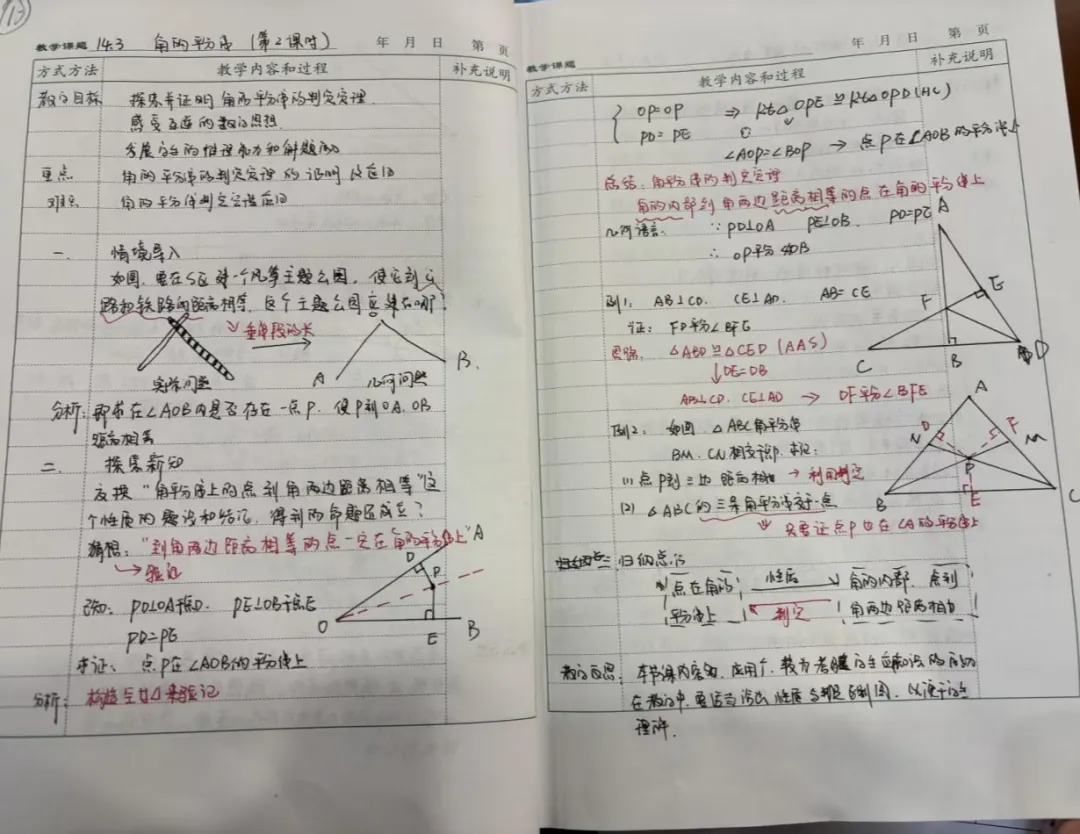 13
教学课题 14.3 角的平分线(第2课时) 年 月 日 第 页
方式方法 教学内容和过程 补充说明
教学目标 探索并证明角的平分线的判定定理.
感受互逆的数学思想.
发展学生的推理能力和解题能力
重点 角的平分线的判定定理的证明及应用
难点 角的平分线判定定理应用
一. 情境导入
如图, 要在S区建一个风筝主题公园, 使它到公
路和铁路的距离相等, 这个主题公园应建在哪?
垂线段的长
实际问题
A
O
B.
几何问题
分析: 即求在∠AOB内是否存在一点P. 使P到OA、OB
距离相等
二. 探索新知
交换"角平分线上的点到角两边距离相等"这
个性质的题设和结论, 得到的命题还成立?
猜想: "到角两边距离相等的点一定在角的平分线上"
验证
A
D
P
O
E
B
已知: PD⊥OA于D. PE⊥OB于E
PD=PE
求证: 点P在∠AOB的平分线上
分析: 构造全等△来验证
教学课题 年 月 日 第 页
方式方法 教学内容和过程 补充说明
OP=OP ⇒ Rt△OPE≌Rt△OPD(HL)
PD=PE
∠AOP=∠BOP → 点P在∠AOB的平分线上
总结: 角平分线的判定定理
角的内部到角两边距离相等的点在角的平分线上
几何语言: ∵ PD⊥OA PE⊥OB. PD=PE
∴ OP平分∠AOB
例1: AB⊥CD. CE⊥AD. AB=CE
证: FD平分∠BFE
思路. △ABD≌△CED (AAS)
↓DE=DB
AB⊥CD. CE⊥AD → DF平分∠BFE
A
E
F
C
B
D
例2: 如图. △ABC角平分线
BM. CN相交于P. 求证:
(1) 点P到三边距离相等 → 利用判定
(2) △ABC的三条角平分线交于一点
只要证点P也在∠A的平分线上
A
D
F
N
M
P
B
E
C
三 归纳总结
点在角的 性质 角的内部, 点到
平分线上 判定 角两边距离相等
教学反思:
在教学中, 要适当
理解.